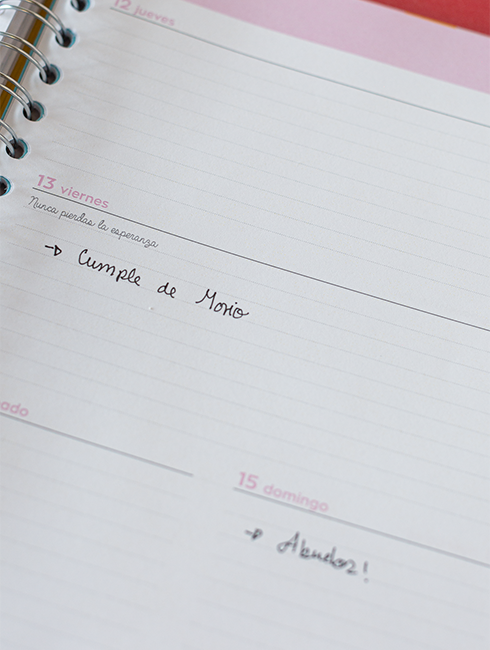 12 jueves
13 viernes
Nunca pierdas la esperanza
→ Cumple de Mario
ado
15 domingo
→ Abuelos!